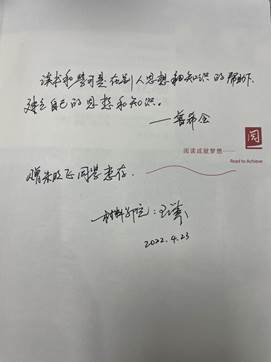 读书和学习是在别人思想和知识的帮助下,
建立自己的思想和知识。
——普希金
阅
阅读成就梦想——
Read to Achieve
赠 同学惠存。
——材料学院:
2022.4.23